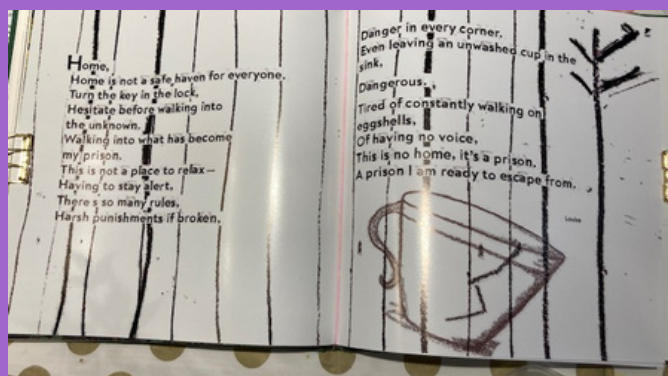 Home,
Home is not a safe haven for everyone.
Turn the key in the lock,
Hesitate before walking into
the unknown.
Walking into what has become
my prison.
This is not a place to relax—
Having to stay alert.
There's so many rules,
Harsh punishments if broken.
Danger in every corner.
Even leaving an unwashed cup in the
sink,
Dangerous.
Tired of constantly walking on
eggshells,
Of having no voice,
This is no home, it's a prison.
A prison I am ready to escape from.
Louise